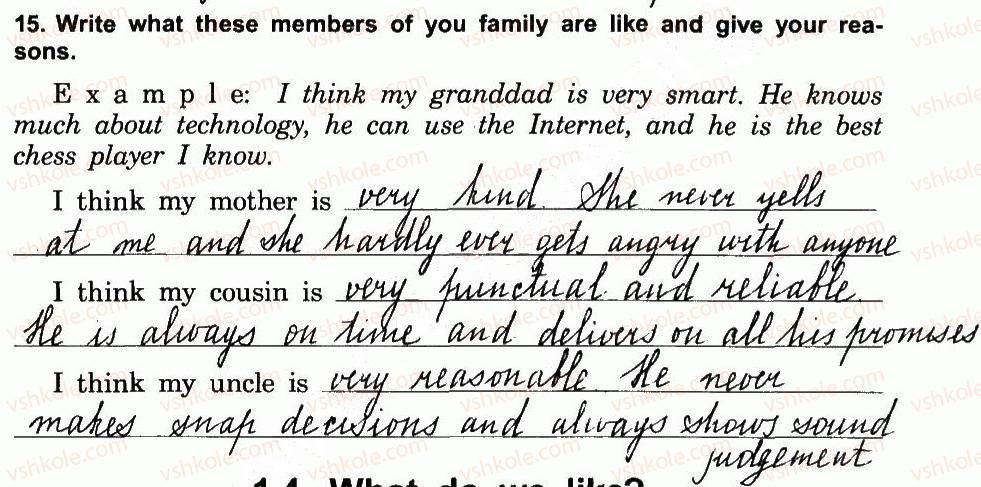 15. Write what these members of you family are like and give your rea-
sons.
Example: I think my granddad is very smart. He knows
much about technology, he can use the Internet, and he is the best
chess player I know.
I think my mother is very kind. She never yells
at me and she hardly ever gets angry with anyone
I think my cousin is very punctual and reliable.
He is always on time and delivers on all his promises
I think my uncle is very reasonable He never
makes snap decisions and always shows sound
judgement
1.4. What do we like?
vshkole.com